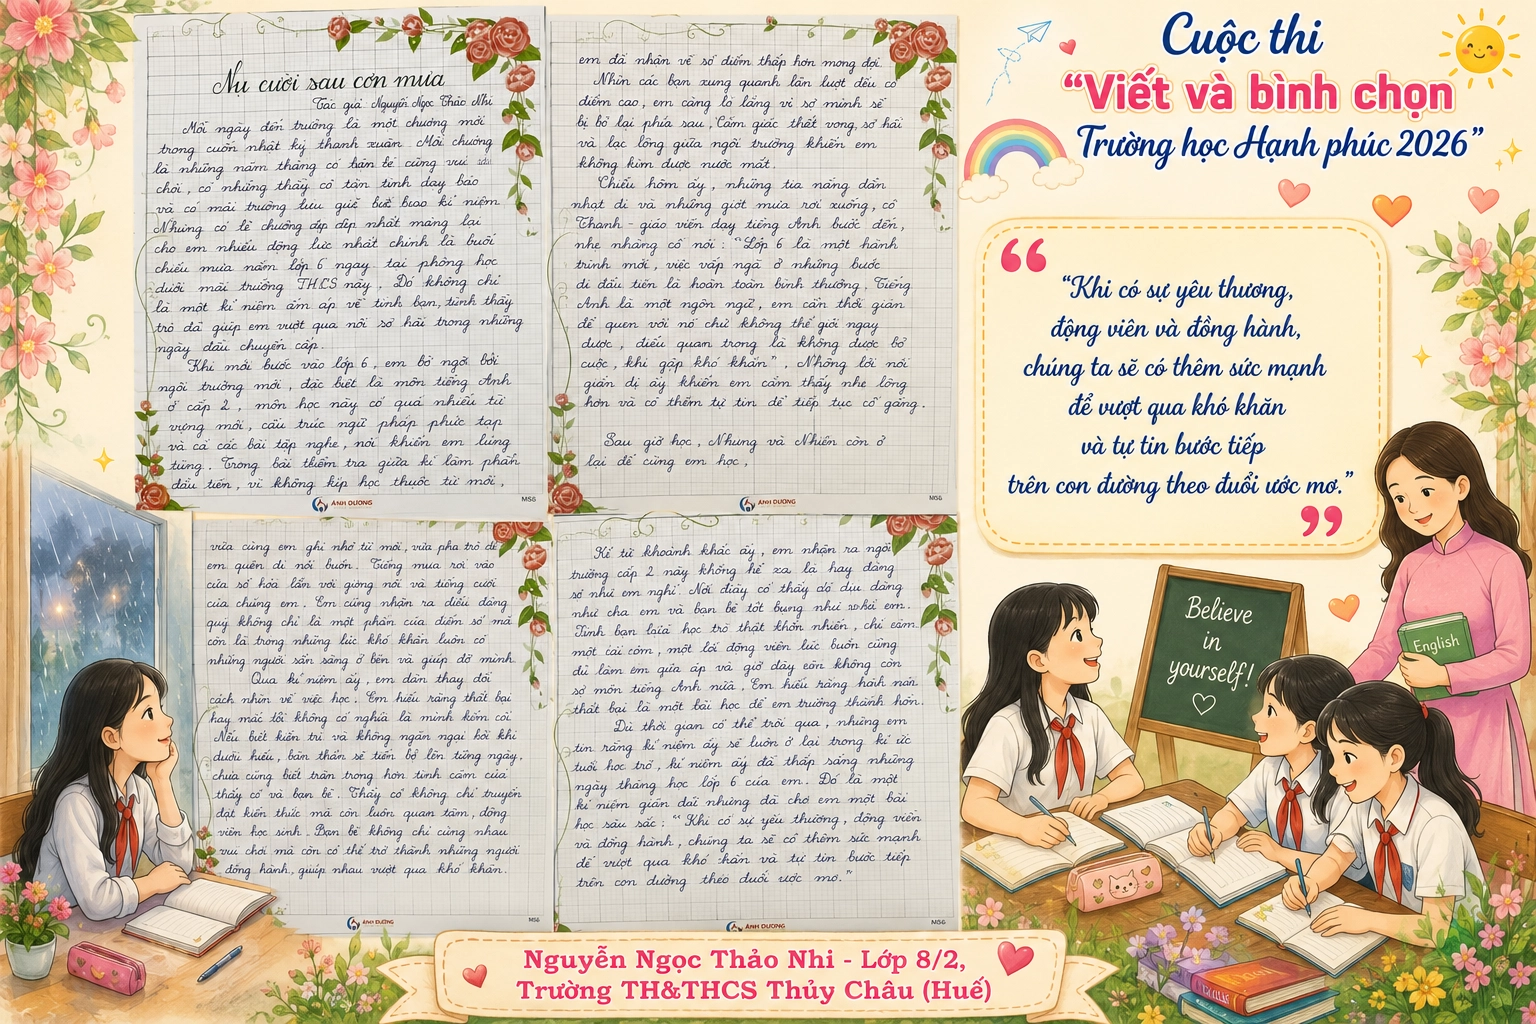 Nụ cười sau cơn mưa
Tác giả Nguyễn Ngọc Thảo Nhi
Mỗi ngày đến trường là một chương mới
trong cuốn nhật ký thanh xuân. Mỗi chương
là những năm tháng có bạn bè cùng vui
chơi, có những thầy cô tận tình dạy bảo
và có mái trường lưu giữ biết bao kỉ niệm
Nhưng có lẽ chương đẹp nhất mang lại
cho em nhiều động lực nhất chính là buổi
chiều mưa năm lớp 6 ngay tại phòng học
dưới mái trường THCS này. Đó không chỉ
là một kỉ niệm ấm áp về tình bạn, tình thầy
trò đã giúp em vượt qua nỗi sợ hãi trong những
ngày đầu chuyển cấp.
Khi mới bước vào lớp 6, em bỡ ngỡ bởi
ngôi trường mới, đặc biệt là môn tiếng Anh
ở cấp 2, môn học này có quá nhiều từ
vựng mới, cấu trúc ngữ pháp phức tạp
và cả các bài tập nghe, nói khiến em lúng
túng. Trong bài kiểm tra giữa kì làm phần
đầu tiên, vì không kịp học thuộc từ mới,
ÁNH DƯƠNG
MS6
em đã nhận về số điểm thấp hơn mong đợi.
Nhìn các bạn xung quanh lần lượt đều có
điểm cao, em càng lo lắng vì sợ mình sẽ
bị bỏ lại phía sau, Cảm giác thất vọng, sợ hãi
và lạc lõng giữa ngôi trường khiến em
không kìm được nước mắt.
Chiều hôm ấy, những tia nắng dần
nhạt đi và những giọt mưa rơi xuống, cô
Thanh - giáo viên dạy tiếng Anh bước đến,
nhẹ nhàng cô nói: "Lớp 6 là một hành
trình mới, việc vấp ngã ở những bước
đi đầu tiên là hoàn toàn bình thường, Tiếng
Anh là một ngôn ngữ, em cần thời gian
để quen với nó chứ không thể giỏi ngay
được, điều quan trọng là không được bỏ
cuộc, khi gặp khó khăn". Những lời nói
giản dị ấy khiến em cảm thấy nhẹ lòng
hơn và có thêm tự tin để tiếp tục cố gắng.
Sau giờ học, Nhung và Nhiên còn ở
lại để cùng em học,
ÁNH DƯƠNG
MS6
vừa cùng em ghi nhớ từ mới, vừa pha trò để
em quên đi nỗi buồn. Tiếng mưa rơi vào
cửa sổ hòa lẫn với giọng nói và tiếng cười
của chúng em. Em cũng nhận ra điều đáng
quý không chỉ là một phần của điểm số mà
còn là trong những lúc khó khăn luôn có
những người sẵn sàng ở bên và giúp đỡ mình.
Qua kỉ niệm ấy, em dần thay đổi
cách nhìn về việc học. Em hiểu rằng thất bại
hay mắc lỗi không có nghĩa là mình kém cỏi
Nếu biết kiên trì và không ngần ngại hỏi khi
chưa hiểu, bản thân sẽ tiến bộ lên từng ngày,
chưa cũng biết trân trọng hơn tình cảm của
thầy cô và bạn bè. Thầy cô không chỉ truyền
đạt kiến thức mà còn luôn quan tâm, động
viên học sinh. Bạn bè không chỉ cùng nhau
vui chơi mà còn có thể trở thành những người
đồng hành, giúp nhau vượt qua khó khăn.
ÁNH DƯƠNG
MS6
Kể từ khoảnh khắc ấy, em nhận ra ngôi
trường cấp 2 này không hề xa lạ hay đáng
sợ như em nghĩ. Nơi đây có thầy cô dịu dàng
như cha em và bạn bè tốt bụng như
Tình bạn học trò thật hồn nhiên, chỉ cần
một cái ôm, một lời động viên lúc buồn cũng
đủ làm em ấm áp và giờ đây em không còn
sợ môn tiếng Anh nữa, Em hiểu rằng
thất bại là một bài học để em trưởng thành hơn.
Dù thời gian có thể trôi qua, nhưng em
tin rằng kỉ niệm ấy sẽ luôn ở lại trong kí ức
tuổi học trò, kỉ niệm ấy đã thắp sáng những
ngày tháng học lớp 6 của em. Đó là một
kỉ niệm giản dị nhưng đã cho em một bài
học sâu sắc: "Khi có sự yêu thương, động viên
và đồng hành, chúng ta sẽ có thêm sức mạnh
để vượt qua khó khăn và tự tin bước tiếp
trên con đường theo đuổi ước mơ."
ÁNH DƯƠNG
MS6
Cuộc thi
"Viết và bình chọn
Trường học Hạnh phúc 2026"
"Khi có sự yêu thương,
động viên và đồng hành,
chúng ta sẽ có thêm sức mạnh
để vượt qua khó khăn
và tự tin bước tiếp
trên con đường theo đuổi ước mơ."
Believe
in
yourself!
English
Nguyễn Ngọc Thảo Nhi - Lớp 8/2,
Trường TH&THCS Thủy Châu (Huế)